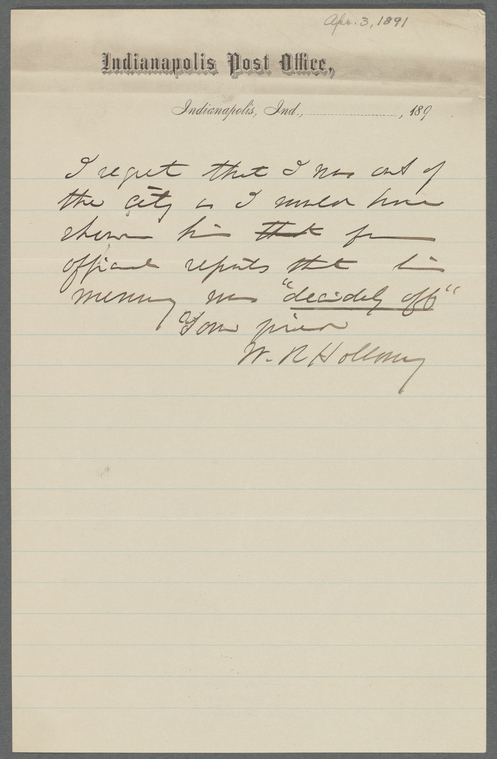 Apr. 3, 1891
Indianapolis Post Office,
Indianapolis, Ind., , 189
I regret that I was out of
the city as I would have
shown him that from
official reports that his
memory was "decidedly off"
Your friend
W. R. Holloway